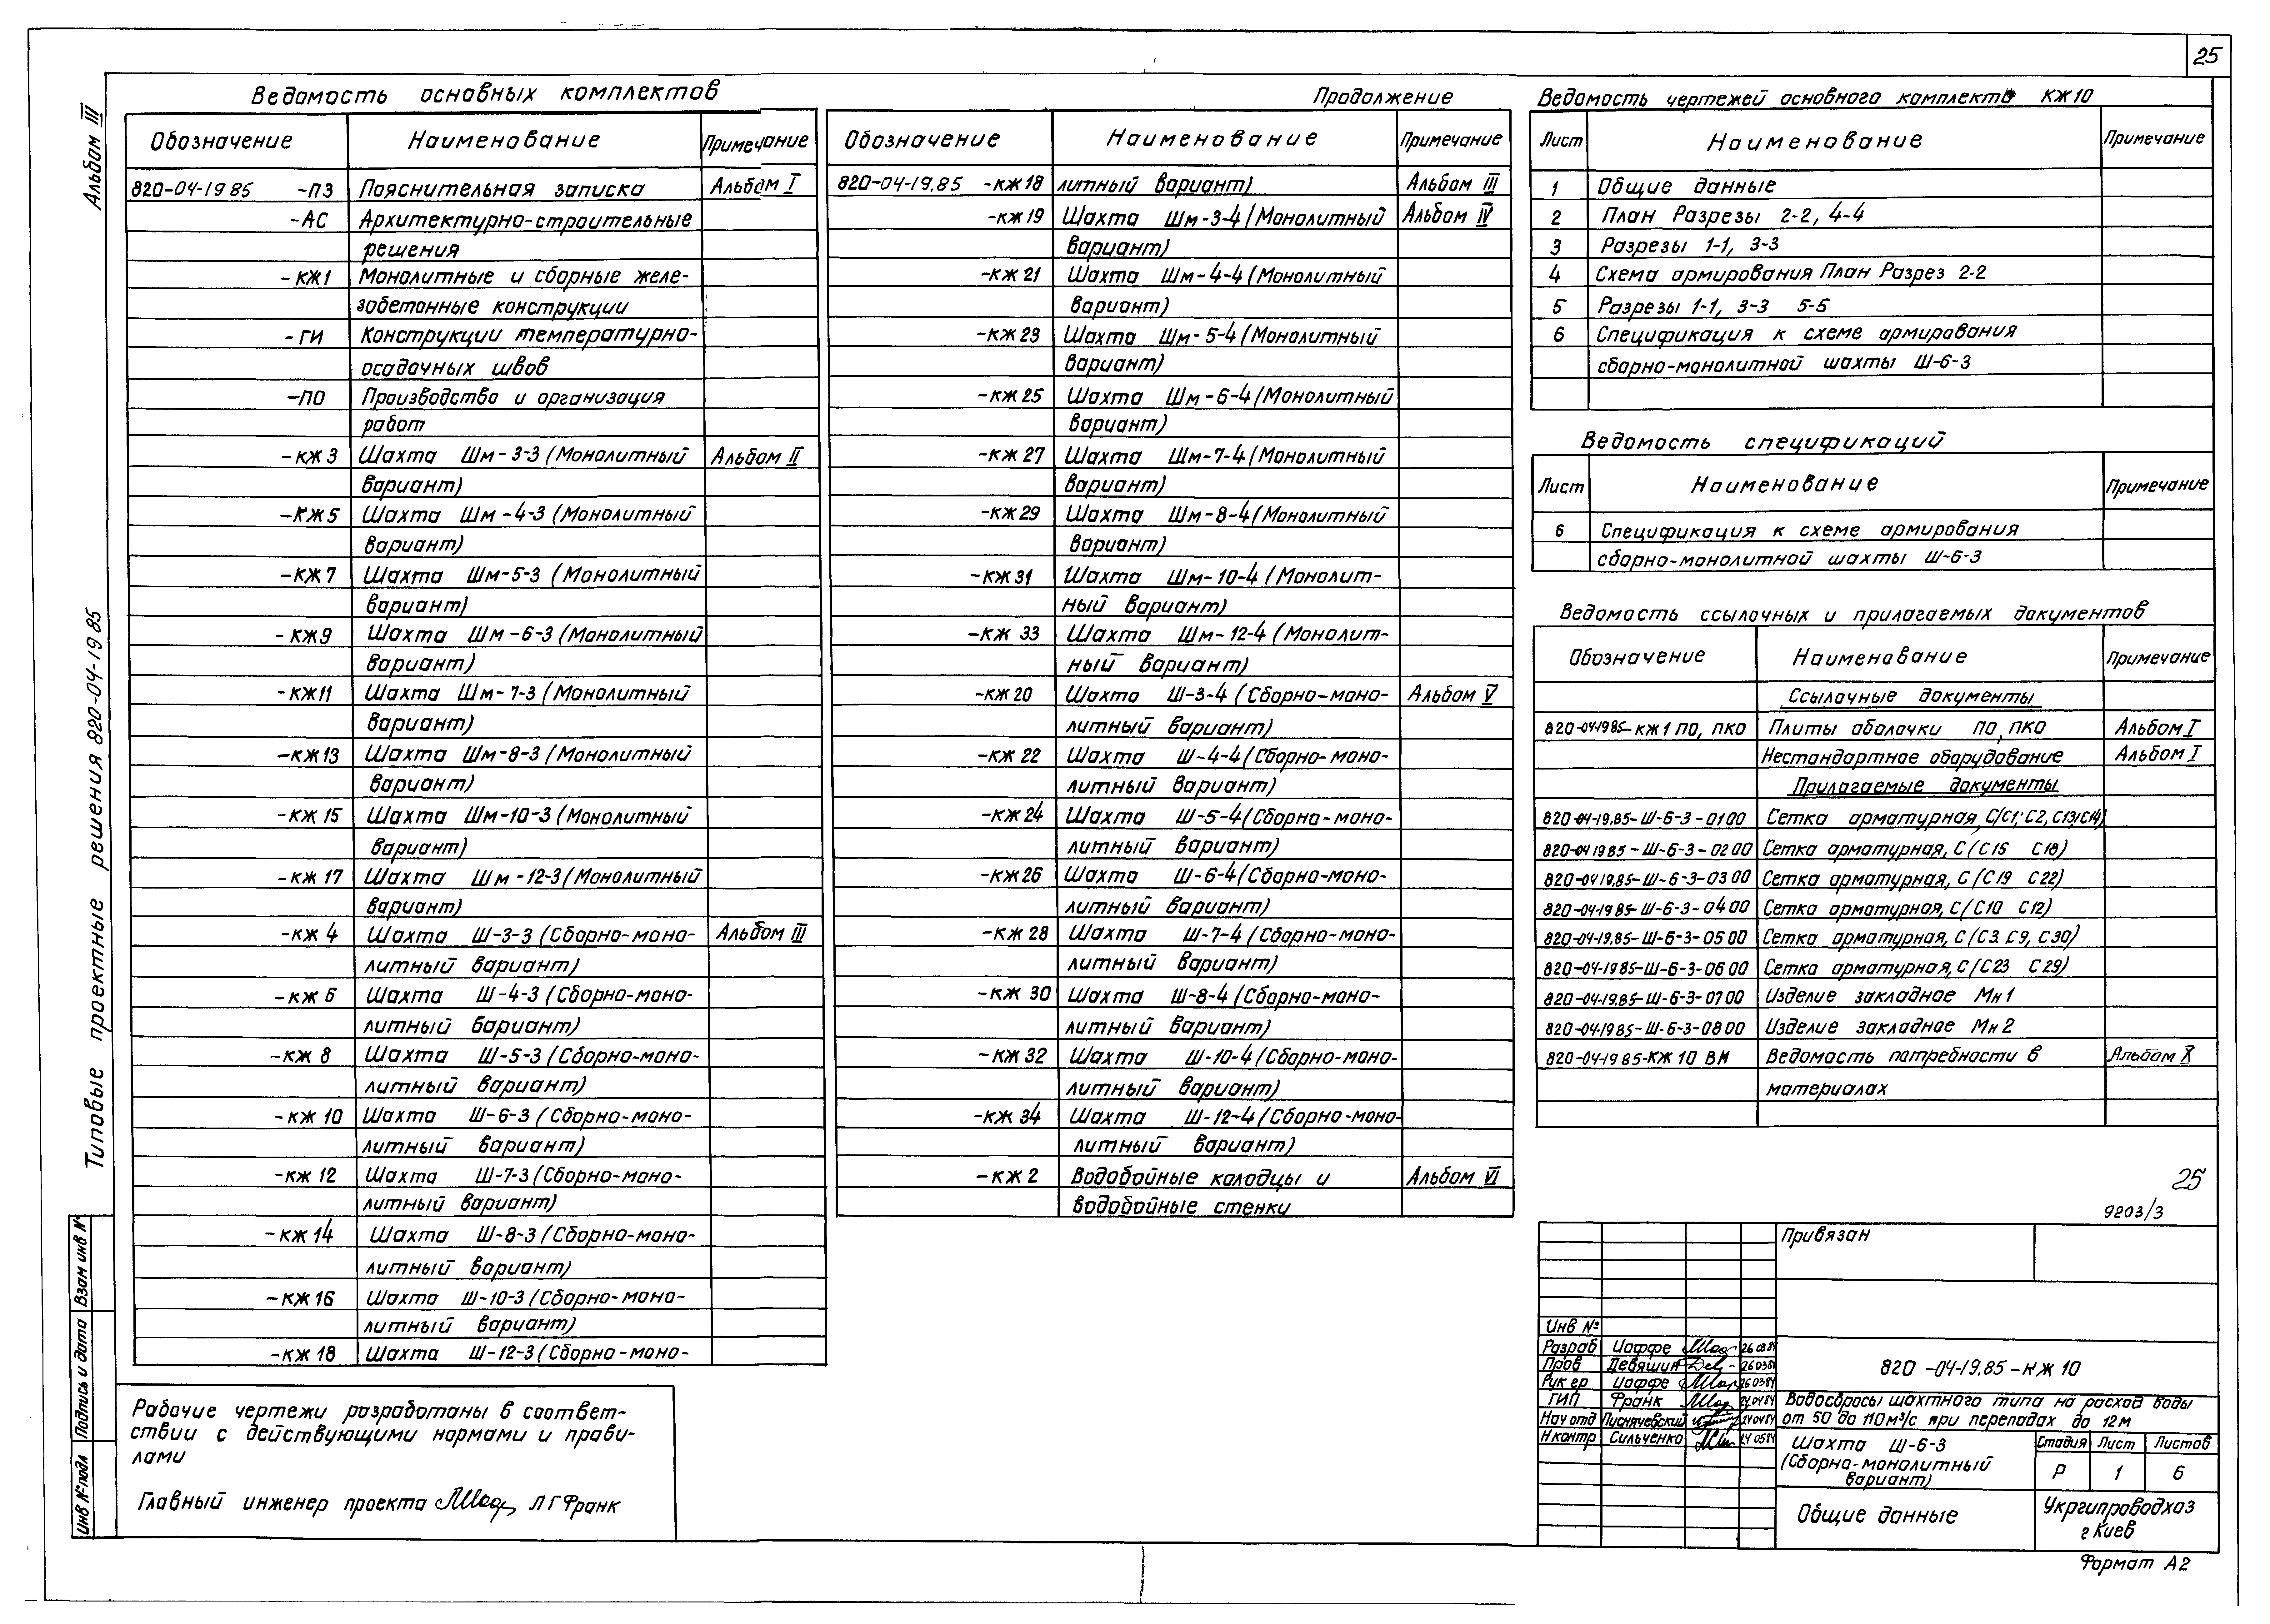 25
Альбом III
Типовые проектные решения 820-04-19 85
Взам инв №
Подпись и дата
Инв № подл
Ведомость основных комплектов
Обозначение Наименование Примечание
820-04-19 85 -ПЗ Пояснительная записка Альбом I
-АС Архитектурно-строительные
решения
-КЖ1 Монолитные и сборные желе-
зобетонные конструкции
-ГИ Конструкции температурно-
осадочных швов
-ПО Производство и организация
работ
-КЖ 3 Шахта Шм-3-3 (Монолитный Альбом II
вариант)
-КЖ 5 Шахта Шм-4-3 (Монолитный
вариант)
-КЖ 7 Шахта Шм-5-3 (Монолитный
вариант)
-КЖ9 Шахта Шм-6-3 (Монолитный
вариант)
-КЖ11 Шахта Шм-7-3 (Монолитный
вариант)
-КЖ13 Шахта Шм-8-3 (Монолитный
вариант)
-КЖ 15 Шахта Шм-10-3 (Монолитный
вариант)
-КЖ 17 Шахта Шм-12-3 (Монолитный
вариант)
-КЖ 4 Шахта Ш-3-3 (Сборно-моно- Альбом III
литный вариант)
-КЖ 6 Шахта Ш-4-3 (Сборно-моно-
литный вариант)
-КЖ 8 Шахта Ш-5-3 (Сборно-моно-
литный вариант)
-КЖ 10 Шахта Ш-6-3 (Сборно-моно-
литный вариант)
-КЖ 12 Шахта Ш-7-3 (Сборно-моно-
литный вариант)
-КЖ 14 Шахта Ш-8-3 (Сборно-моно-
литный вариант)
-КЖ 16 Шахта Ш-10-3 (Сборно-моно-
литный вариант)
-КЖ 18 Шахта Ш-12-3 (Сборно-моно-
Рабочие чертежи разработаны в соответ-
ствии с действующими нормами и прави-
лами
Главный инженер проекта Л Г Франк
Продолжение
Обозначение Наименование Примечание
820-04-19.85 -КЖ18 литный вариант) Альбом III
-КЖ 19 Шахта Шм-3-4 (Монолитный Альбом IV
вариант)
-КЖ 21 Шахта Шм-4-4 (Монолитный
вариант)
-КЖ 23 Шахта Шм-5-4 (Монолитный
вариант)
-КЖ 25 Шахта Шм-6-4 (Монолитный
вариант)
-КЖ 27 Шахта Шм-7-4 (Монолитный
вариант)
-КЖ29 Шахта Шм-8-4 (Монолитный
вариант)
-КЖ 31 Шахта Шм-10-4 (Монолит-
ный вариант)
-КЖ 33 Шахта Шм-12-4 (Монолит-
ный вариант)
-КЖ 20 Шахта Ш-3-4 (Сборно-моно- Альбом V
литный вариант)
-КЖ 22 Шахта Ш-4-4 (Сборно-моно-
литный вариант)
-КЖ24 Шахта Ш-5-4 (Сборно-моно-
литный вариант)
-КЖ26 Шахта Ш-6-4 (Сборно-моно-
литный вариант)
-КЖ 28 Шахта Ш-7-4 (Сборно-моно-
литный вариант)
-КЖ 30 Шахта Ш-8-4 (Сборно-моно-
литный вариант)
-КЖ 32 Шахта Ш-10-4 (Сборно-моно-
литный вариант)
-КЖ 34 Шахта Ш-12-4 (Сборно-моно-
литный вариант)
-КЖ 2 Водобойные колодцы и Альбом VI
водобойные стенки
Ведомость чертежей основного комплекта КЖ10
Лист Наименование Примечание
1 Общие данные
2 План Разрезы 2-2, 4-4
3 Разрезы 1-1, 3-3
4 Схема армирования План Разрез 2-2
5 Разрезы 1-1, 3-3 5-5
6 Спецификация к схеме армирования
сборно-монолитной шахты Ш-6-3
Ведомость спецификаций
Лист Наименование Примечание
6 Спецификация к схеме армирования
сборно-монолитной шахты Ш-6-3
Ведомость ссылочных и прилагаемых документов
Обозначение Наименование Примечание
Ссылочные документы
820-04-1985-КЖ1 ПО, ПКО Плиты оболочки ПО, ПКО Альбом I
Нестандартное оборудование Альбом I
Прилагаемые документы
820-04-19.85-Ш-6-3-0100 Сетка арматурная, С(С1; С2, С13, С14)
820-04 1985-Ш-6-3-0200 Сетка арматурная, С (С15 С18)
820-04-19.85-Ш-6-3-0300 Сетка арматурная, С (С19 С22)
820-04-19 85-Ш-6-3-0400 Сетка арматурная, С (С10 С12)
820-04-19.85-Ш-6-3-0500 Сетка арматурная, С (С3 С9, С30)
820-04-1985-Ш-6-3-0600 Сетка арматурная, С (С23 С29)
820-04-19.85-Ш-6-3-0700 Изделие закладное Мн1
820-04-1985-Ш-6-3-0800 Изделие закладное Мн2
820-04-1985-КЖ 10 ВМ Ведомость потребности в Альбом X
материалах
25
9203/3
Привязан
Инв №
Разраб Иоффе 26 03 84
Пров Девяшин 26 03 84
Рук гр Иоффе 26 03 84
ГИП Франк 24 04 84
Нач отд 24 04 84
Н контр Сильченко 24 05 84
820-04-19.85-КЖ 10
Водосбросы шахтного типа на расход воды
от 50 до 110 м³/с при перепадах до 12 м
Шахта Ш-6-3
(Сборно-монолитный
вариант)
Стадия Лист Листов
Р 1 6
Общие данные
Укргипроводхоз
г Киев
Формат А2